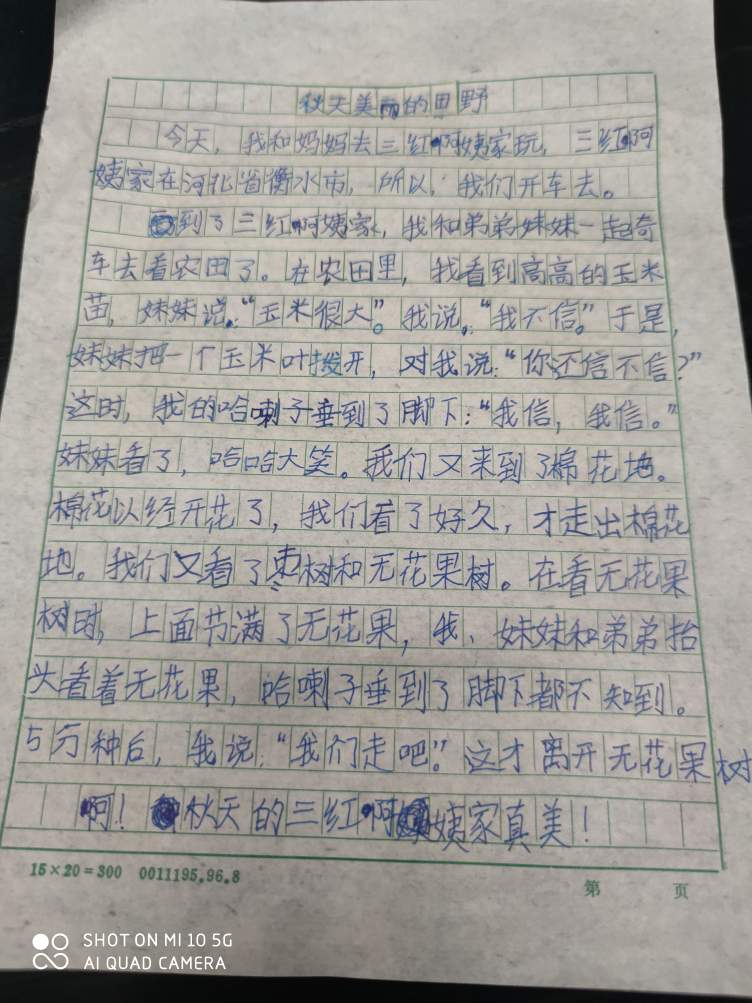 秋天美丽的田野
今天，我和妈妈去三红啊姨家玩，三红啊
姨家在河北省衡水市，所以，我们开车去。
到了三红啊姨家，我和弟弟妹妹一起奇
车去看农田了。在农田里，我看到高高的玉米
苗，妹妹说：“玉米很大”。我说：“我不信。”于是，
妹妹把一个玉米叶拨开，对我说：“你还信不信？”
这时，我的哈喇子垂到了脚下：“我信，我信。”
妹妹看了，哈哈大笑。我们又来到了棉花地。
棉花以经开花了，我们看了好久，才走出棉花
地。我们又看了枣树和无花果树。在看无花果
树时，上面节满了无花果，我、妹妹和弟弟抬
头看着无花果，哈喇子垂到了脚下都不知到。
5分种后，我说：“我们走吧”。这才离开无花果树
啊！秋天的三红啊姨家真美！
15×20=300 0011195.96.8
第 页
SHOT ON MI 10 5G
AI QUAD CAMERA